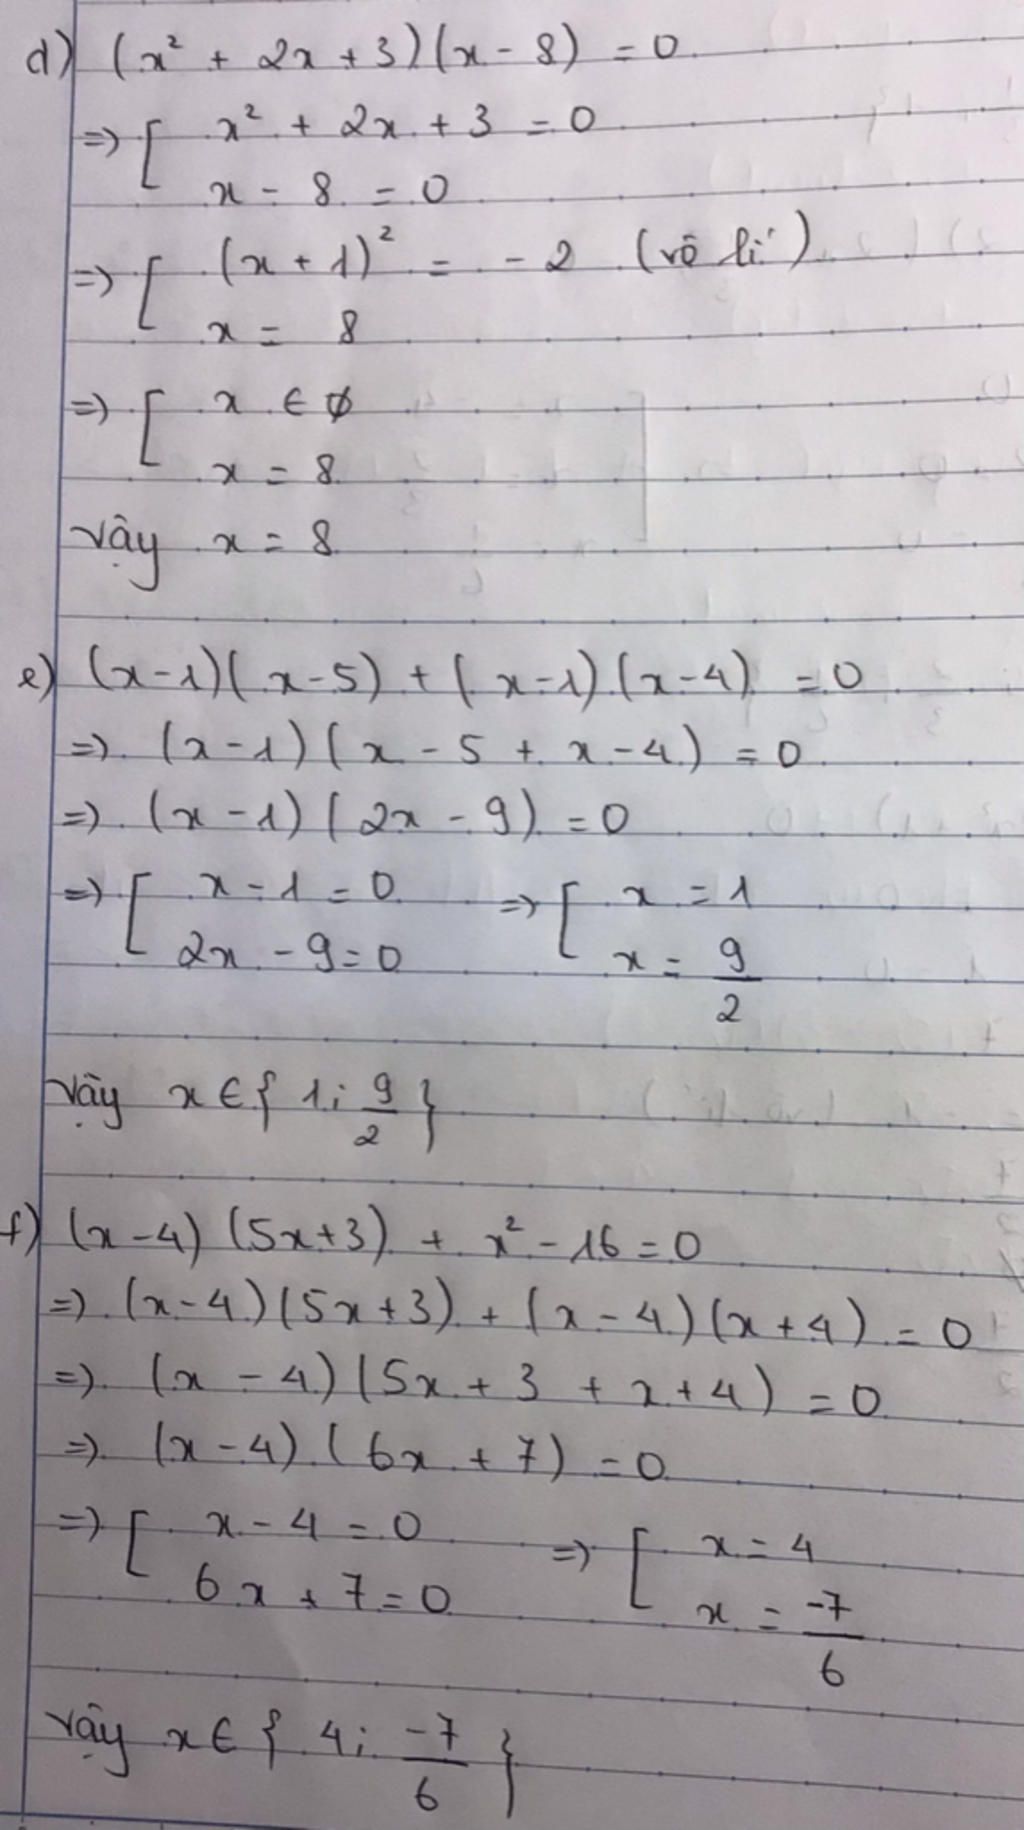 d) (x² + 2x + 3)(x - 8) = 0
=> [ x² + 2x + 3 = 0
x - 8 = 0
=> [ (x + 1)² = - 2 (vô lí)
x = 8
=> [ x ∈ ∅
x = 8
Vậy x = 8
e) (x-1)(x-5) + (x-1)(x-4) = 0
=> (x-1)(x - 5 + x - 4) = 0
=> (x - 1)(2x - 9) = 0
=> [ x - 1 = 0 => [ x = 1
2x - 9 = 0 x = 9/2
Vậy x ∈ { 1; 9/2 }
f) (x-4)(5x+3) + x² - 16 = 0
=> (x-4)(5x+3) + (x-4)(x+4) = 0
=> (x - 4)(5x + 3 + x + 4) = 0
=> (x-4)(6x + 7) = 0
=> [ x - 4 = 0 => [ x = 4
6x + 7 = 0 x = -7/6
Vậy x ∈ { 4; -7/6 }